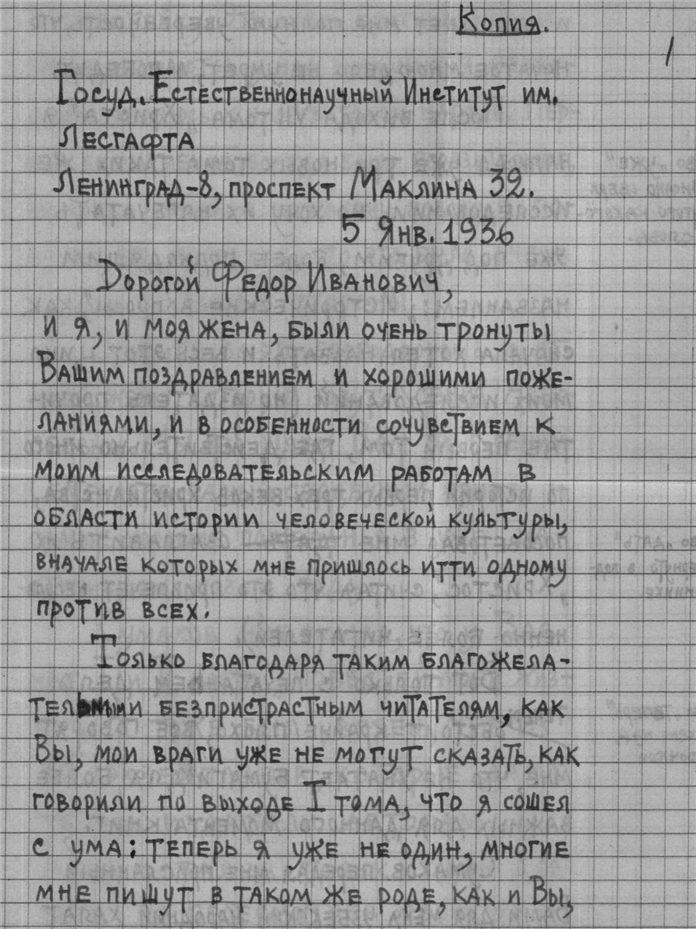 Копия.
1
Госуд. Естественнонаучный Институт им.
Лесгафта
Ленинград-8, проспект Маклина 32.
5 Янв. 1936
Дорогой Федор Иванович,
и я, и моя жена, были очень тронуты
Вашим поздравлением и хорошими поже-
ланиями, и в особенности сочувствием к
моим исследовательским работам в
области истории человеческой культуры,
вначале которых мне пришлось итти одному
против всех.
Только благодаря таким благожела-
тельным и безпристрастным читателям, как
Вы, мои враги уже не могут сказать, как
говорили по выходе I тома, что я сошел
с ума: теперь я уже не один, многие
мне пишут в таком же роде, как и Вы,